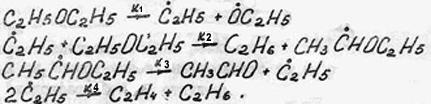 C₂H₅OC₂H₅ —K₁→ Ċ₂H₅ + ȮC₂H₅
Ċ₂H₅ + C₂H₅OC₂H₅ —K₂→ C₂H₆ + CH₃ĊHOC₂H₅
CH₃ĊHOC₂H₅ —K₃→ CH₃CHO + Ċ₂H₅
2Ċ₂H₅ —K₄→ C₂H₄ + C₂H₆.